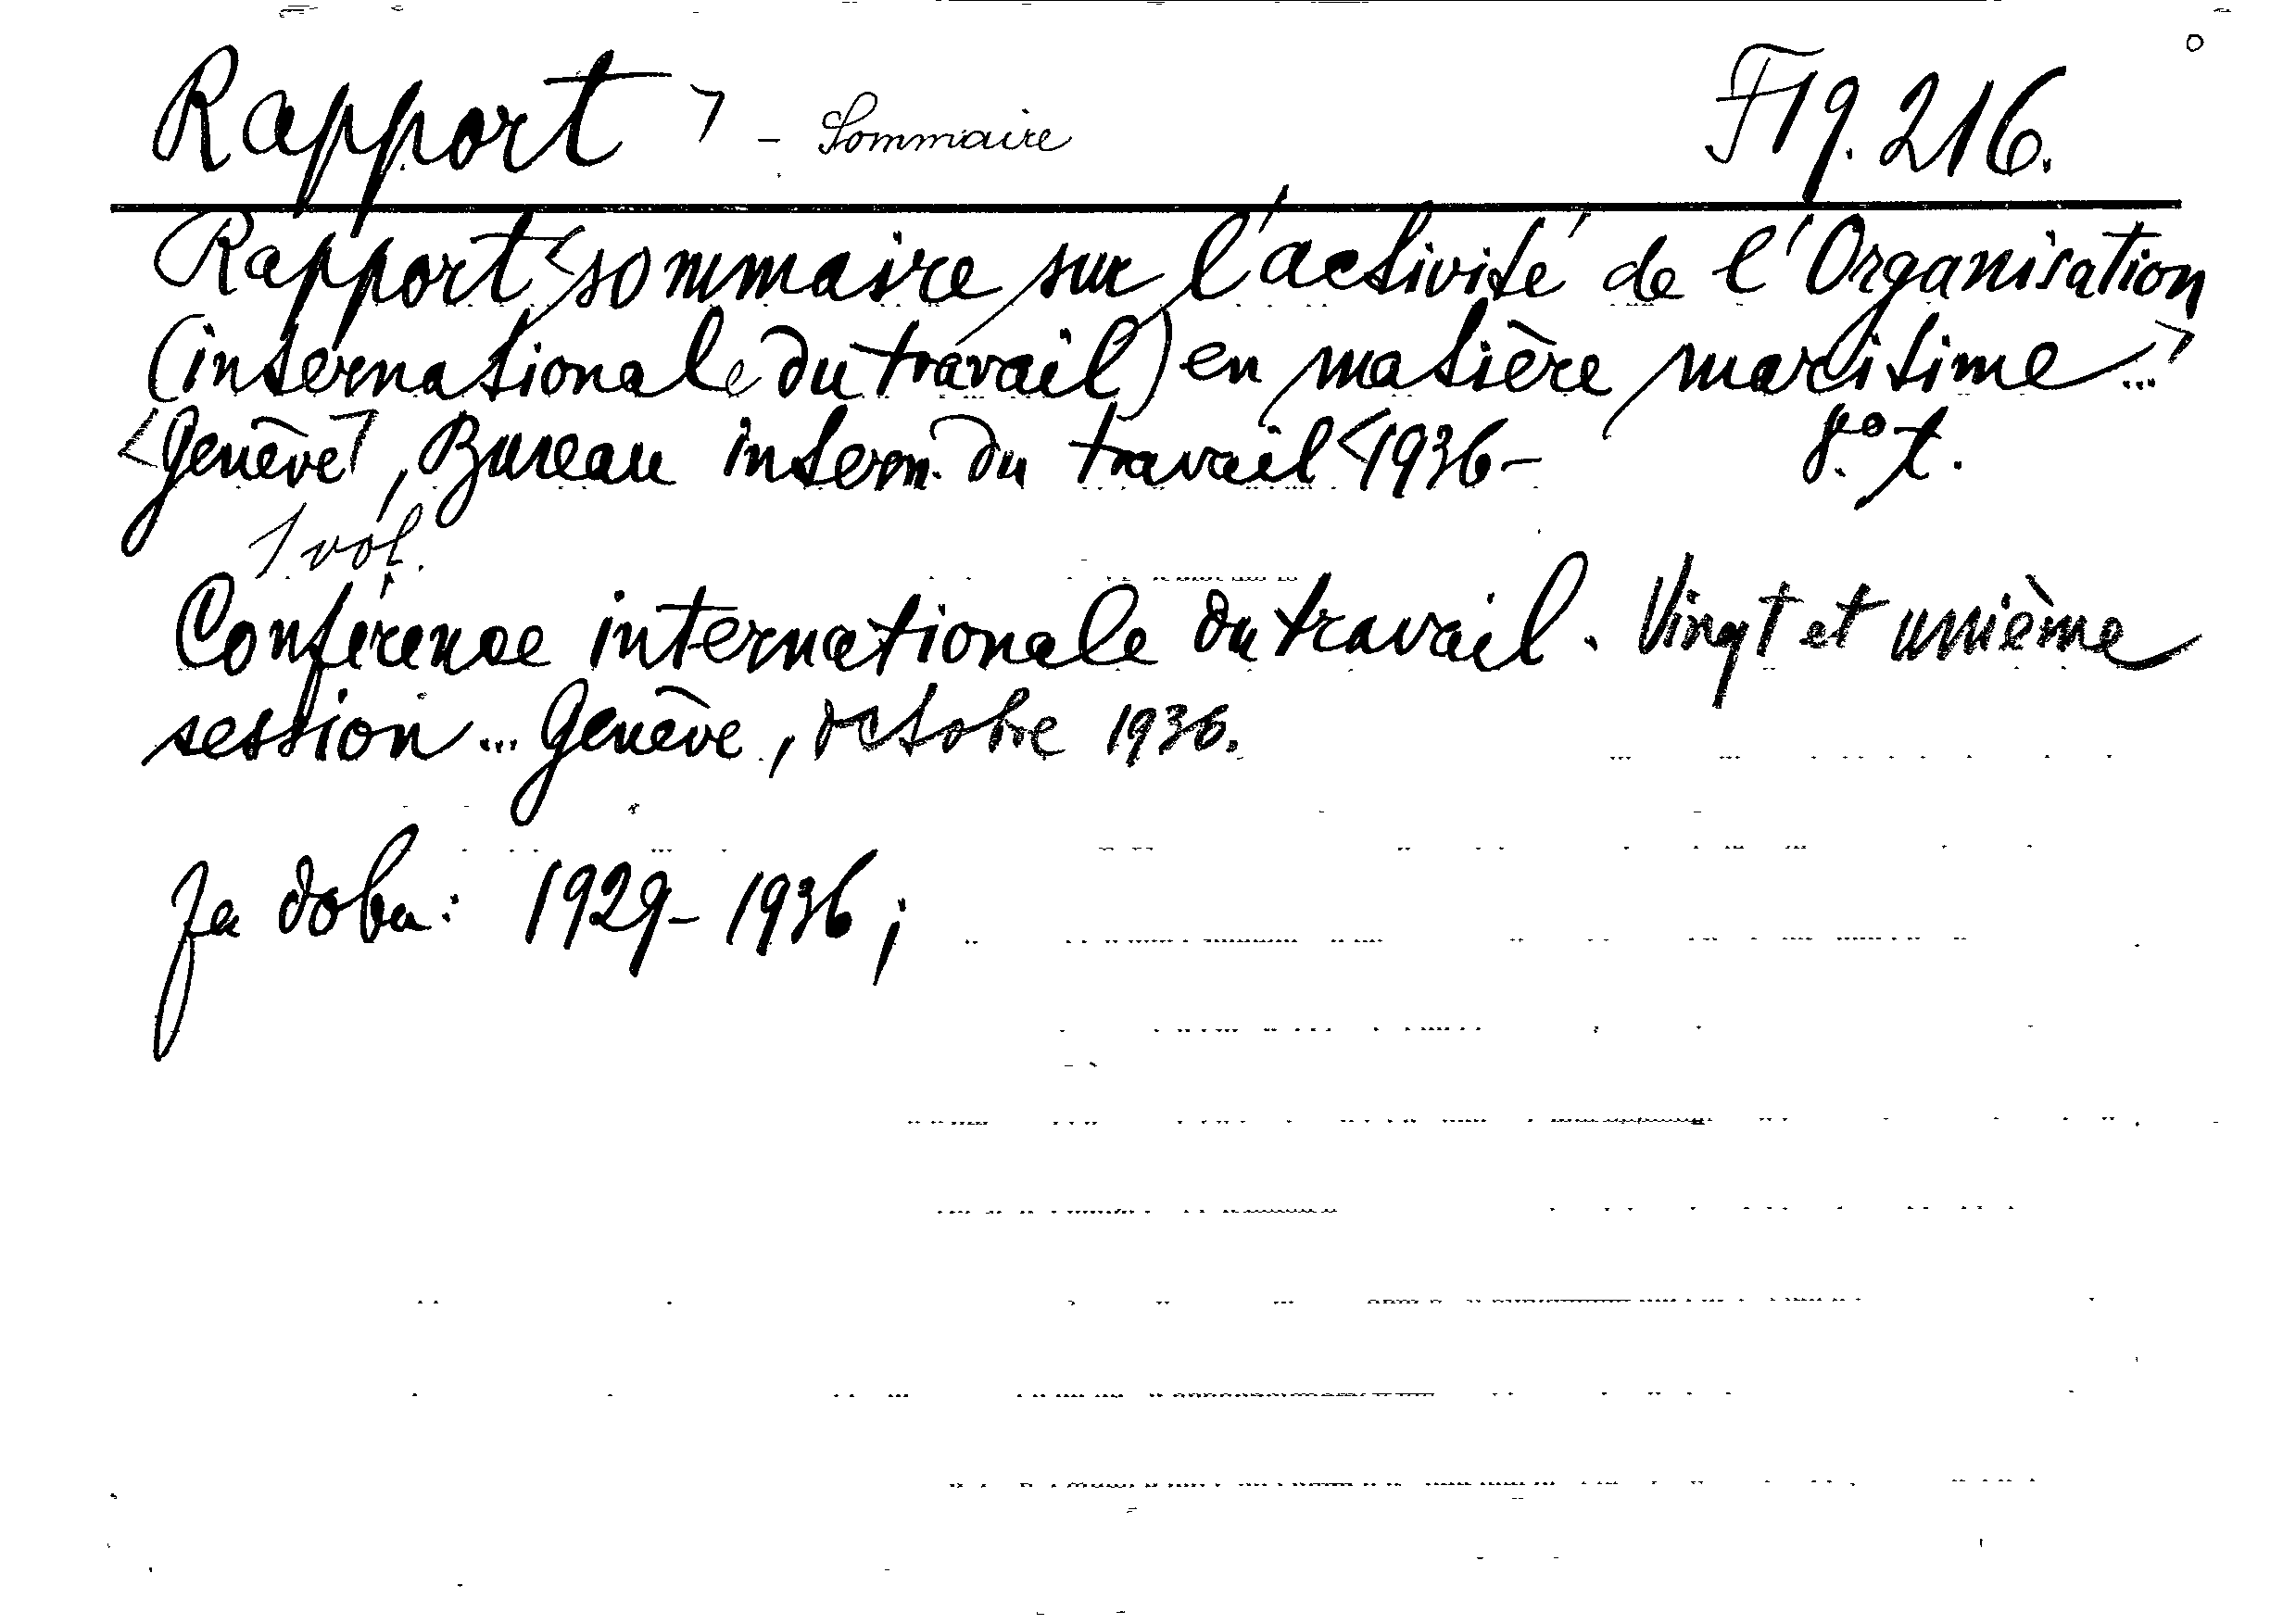 Rapport > - Sommaire F 19.216.
Rapport <sommaire sur l'activité de l'Organisation
(internationale du travail) en matière maritime ...>
<Genève>, Bureau intern. du travail <1936- 8.° t.
1 vol.
Conférence internationale du travail. Vingt et unième
session ... Genève, octobre 1936.
Za dobu: 1929-1936;